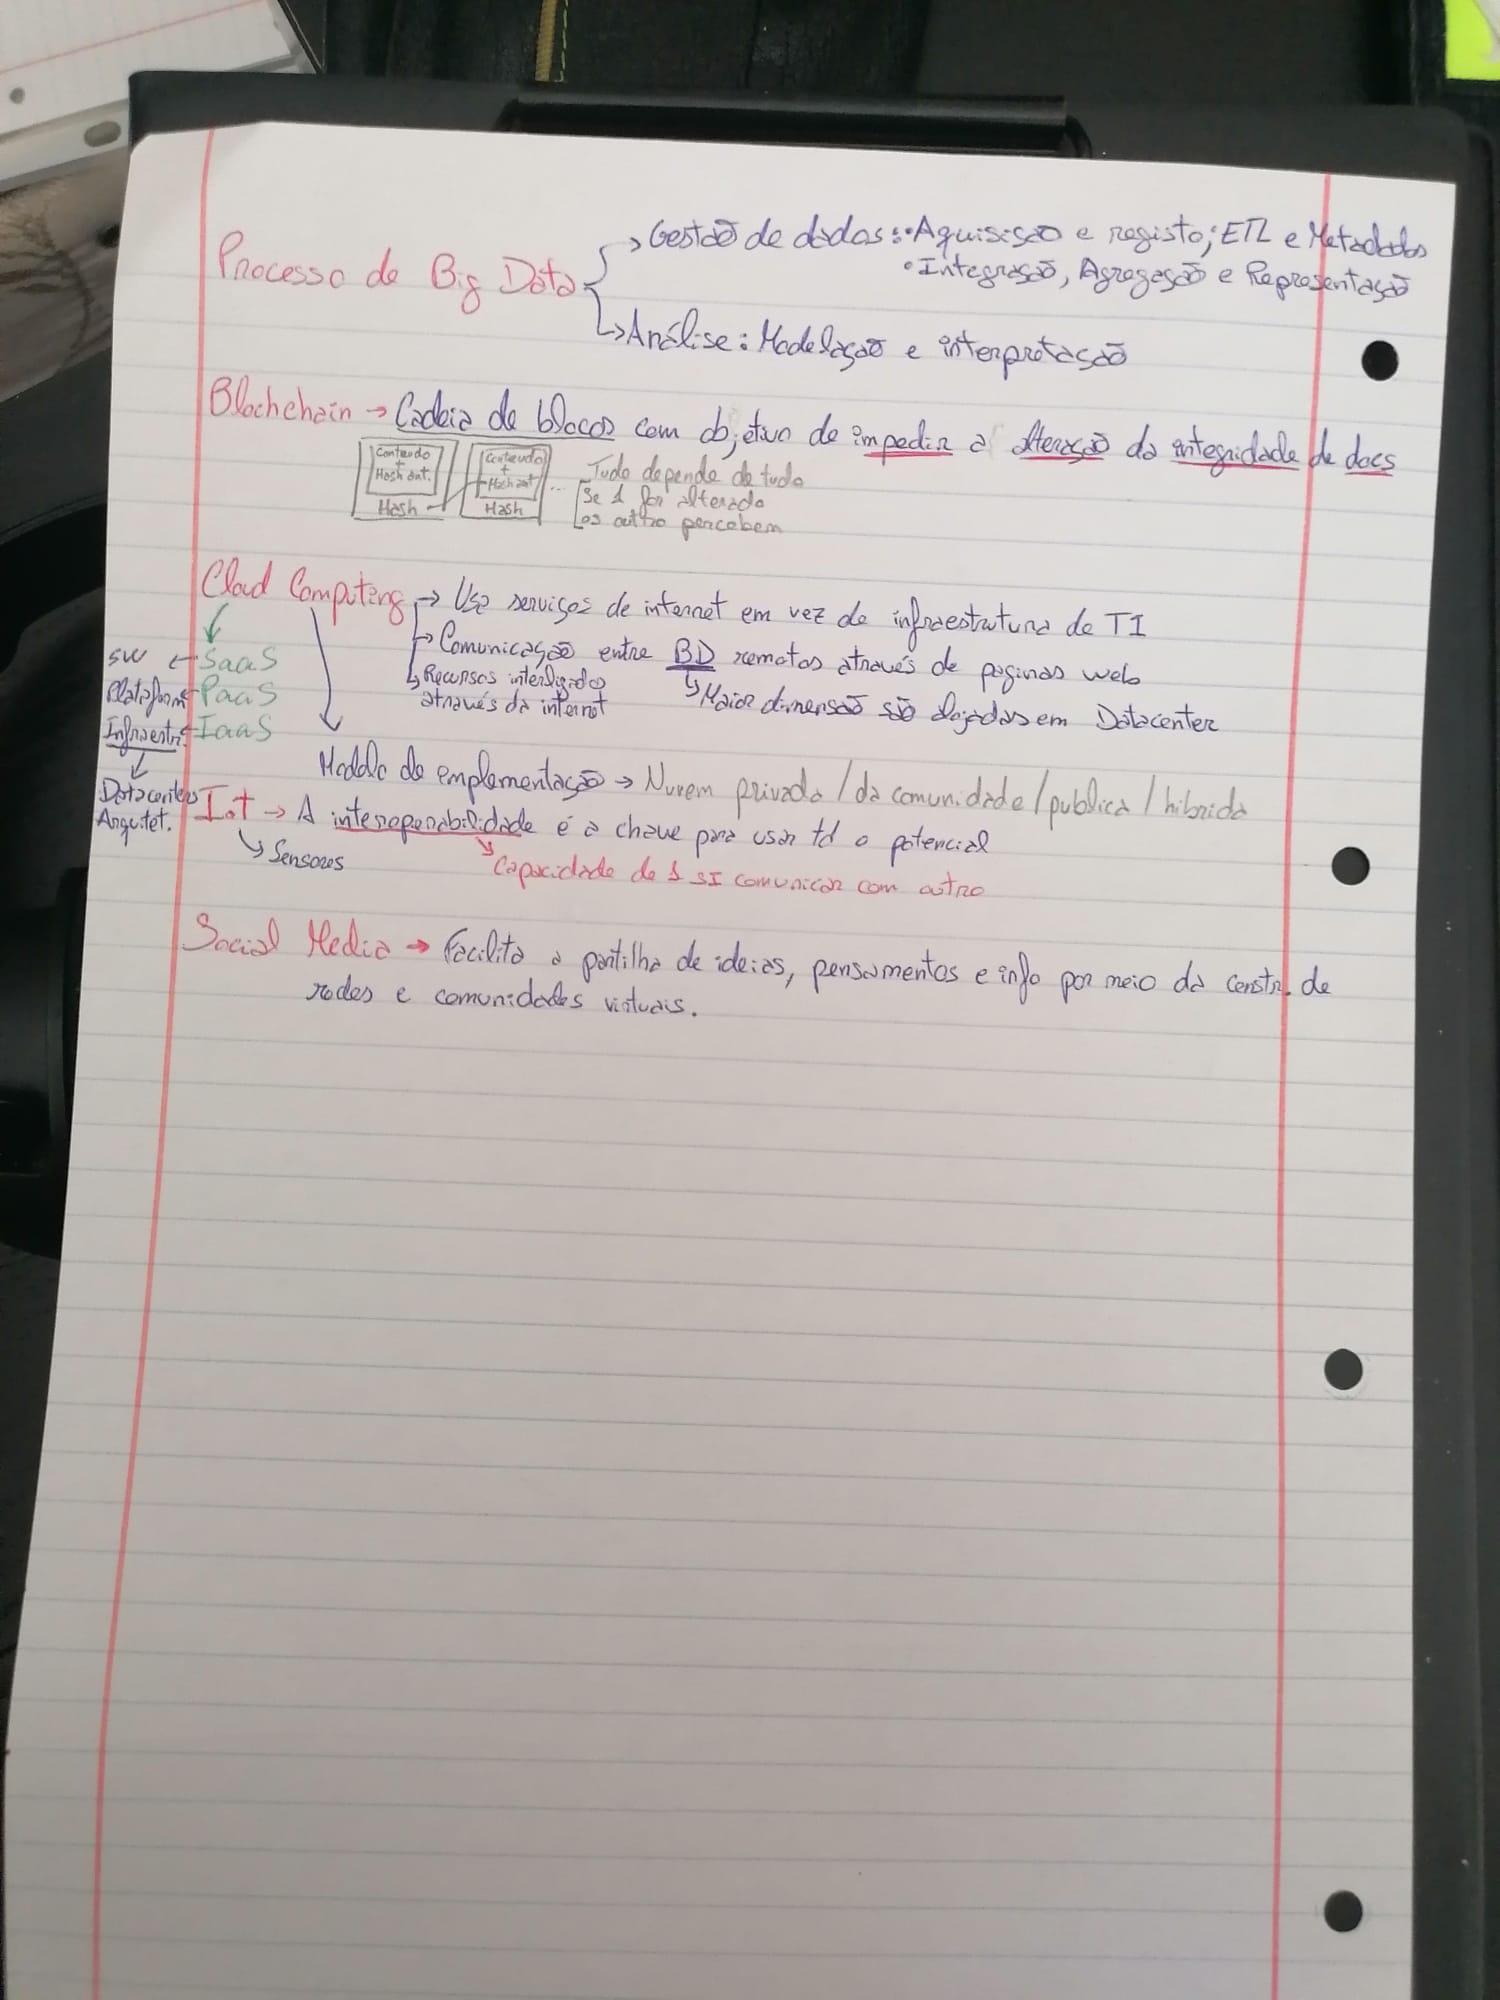 Processo de Big Data
→ Gestão de dados: • Aquisisção e registo; ETL e Metadados
• Integração, Agregação e Representação
↳ Análise: Modelação e interpretação
Blochchain → Cadeia de blocos com objetivo de impedir a alteração da integridade de docs
Conteudo + Hash ant. Hash
Conteudo + Hash ant Hash ...
Tudo depende de tudo
Se 1 for alterado
os outro percebem
Cloud Computing → Usa serviços de internet em vez de infraestrutura de TI
→ Comunicação entre BD remotas através de paginas web
↳ Maior dimensão são alojadas em Datacenter
↳ Recursos interligados
através da internet
SW ← SaaS
Plataforma ← PaaS
Infraestr. ← IaaS
Datacenters
Arquitet.
Modelo de emplementação → Nuvem privada / da comunidade / publica / hibrida
IoT → A interoperabilidade é a chave para usar td o potencial
↳ Sensores
↳ Capacidade de 1 SI comunicar com outro
Social Media → Facilita a partilha de ideias, pensamentos e info por meio da constr. de
redes e comunidades virtuais.